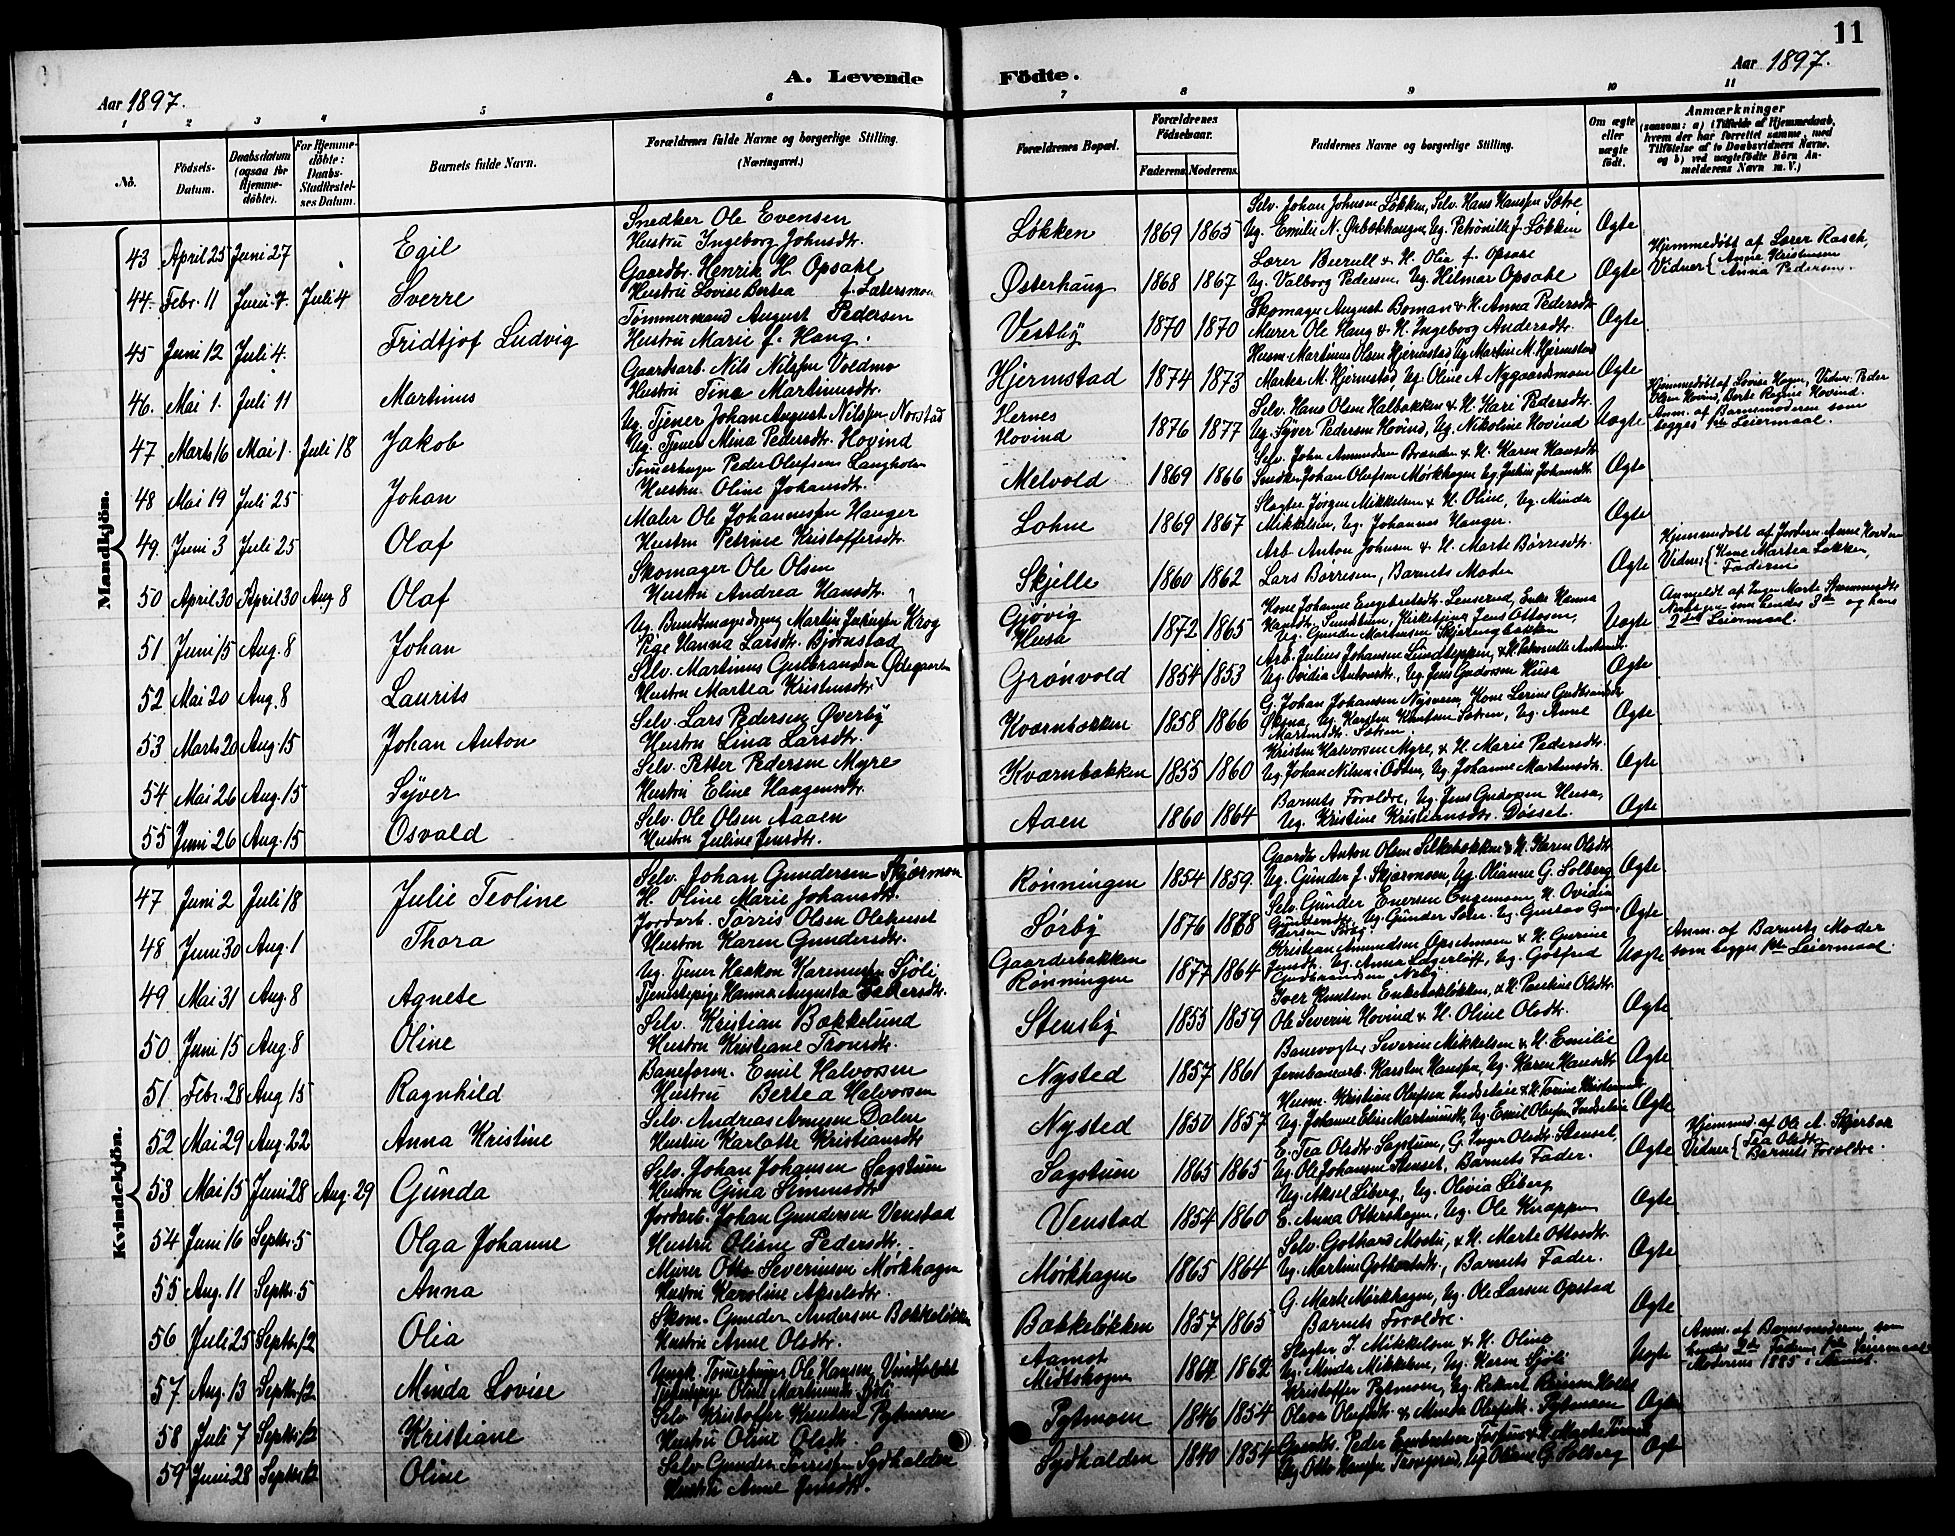 11
A. Levende Födte.
Aar 1897.
Aar 1897.
1 2 3 4 5 6 7 8 9 10 11
No.
Födsels-Datum.
Daabsdatum (ogsaa for Hjemmedöbte).
For Hjemmedöbte: Daabs-Stadfæstelses Datum.
Barnets fulde Navn.
Forældrenes fulde Navne og borgerlige Stilling. (Næringsvei.)
Forældrenes Bopæl.
Forældrenes Födselsaar.
Faderens. Moderens.
Faddernes Navne og borgerlige Stilling.
Om ægte eller uægte födt.
Anmærkninger (saasom: a) i Tilfælde af Hjemmedaab, hvem der har forrettet samme, med Tilföielse af to Daabsvidners Navne, og b) ved uægtefödte Börn Anmelderens Navn m. V.)
Mandkjön.
43 April 25 Juni 27 Egil
Snedker Ole Evensen
Hustru Ingeborg Johnsdtr.
Løkken 1869 1865
Selv. Johan Johnsen Løkken, Selv. Hans Hansen Sætre
Ug. Emilie N. Ørbækhaugen, Ug. Petronille J. Løkken
Ægte
44. Febr. 11 Juni 7 Juli 4 Sverre
Gaardbr. Henrik H. Opsahl
Hustru Lovise Bertea
Østerhaug 1868 1867
Lærer Burull & H. Olia f. Opsahl
Ug. Valborg Pedersen, Ug. Hilmar Opsahl
Ægte
Hjemmedøbt af Lærer Rasch,
Vidner { Anne Kristensen
Anna Pedersen.
45 Juni 12 Juli 4. Fridtjof Ludvig
Tømmermand August Pedersen
Hustru Marie f. Haug.
Vestby 1870 1870
Skomager August Boman & H. Anna Pedersdtr
Murer Ole Haug & H. Ingeborg Andersdtr.
Ægte
46. Mai 1. Juli 11 Martinus
Gaardsarb. Nils Nilsen Voldmo
Hustru Tina Martinusdtr.
Hjermstad 1874 1873
Husm. Martinus Olsen Hjermstad, Ug. Martine M. Hjermstad
Martea M. Hjermstad, Ug. Oline A. Nygaardsmoen
Ægte
47 Marts 16 Mai 1. Juli 18 Jakob
Ug. Tjener Johan August Nilsen Norstad
Ug. Tjener Mina Pedersdtr. Hovind
Hernes
Hovind 1876 1877
Selv. Hans Olsen Halbakken & H. Kari Pedersdtr.
Ug. Syver Pedersen Hovind, Ug. Nikoline Hovind
Uægte
Hjemmedøbt af Lovise Hagen, Vidner: Peder
Olsen Hovind, Berte Regine Hovind.
Anm. af Barnemoderen som
begges 1ste Leiermaal.
48 Mai 19 Juli 25 Johan
Tømmerhugger Peder Olufsen Langholen
Hustru Oline Johansdtr.
Melvold 1869 1866
Selv. John Amundsen Brænden & H. Karen Hansdtr.
Snedker Johan Olufsen Mørkhagen Ug. Julius Johansdtr.
Ægte
49. Juni 3 Juli 25 Olaf
Maler Ole Johannesen Hanger
Hustru Petrine Kristoffersdtr.
Lohne 1869 1867
Slagter Jørgen Mikkelsen & H. Oline, Ug. Minda
Mikkelsen, Ug. Johannes Hanger.
Ægte
50 April 30 April 30 Aug 8 Olaf
Skomager Ole Olsen
Hustru Andrea Hansdtr.
Skjelle 1860 1862
Arb. Anton Johnsen & H. Marte Børresdtr.
Lars Børresen, Barnets Moder
Ægte
Hjemmedøbt af Jordem. Anne Hovden
Vidner { Kone Martea Løkken,
Faderen
51 Juni 15 Aug. 8 Johan
Ug. Bundtmagersvend Martin Krog
Pige Hanna Larsdtr. Bjørnstad
Gjøvig
Husa 1872 1865
Kone Johanne Engebretsdtr. Lenserud, Enke Hanna
Hansdtr. Sundbien, Kirketjener Jens Ottesen,
Ug. Gunder Martinsen Skjærengbakken
Uægte
Anmeldt af Inger Marte
som hendes 3die og hans
2den Leiermaal.
52 Mai 20 Aug. 8 Laurits
Selv. Martinus Gulbrandsen Ødegaarden
Hustru Martea Kristensdtr.
Grønvold 1854 1853
Arb. Julius Johansen Lundteppen, & H. Petronelle Antonsdtr
Ug. Ovidia Antonsdtr., Ug. Jens Gudvorsen Husa
Ægte
53 Marts 20 Aug. 15 Johan Anton
Selv. Lars Pedersen Øverby
Hustru Lina Larsdtr.
Kværnbakken 1858 1866
G. Johan Johansen Nysveen, Kone Lerine Gudbrandsdtr
Ug. Karsten Knutsen Sætren, Ug. Anne
Martinsdtr. Sætren
Ægte
54 Mai 26 Aug. 15 Syver
Selv. Petter Pedersen Myre
Hustru Eline Haagensdtr.
Kværnbakken 1855 1860
Kristen Halvorsen Myre, & H. Marie Pedersdtr.
Ug. Johan Nilsen Odden, Ug. Johanne Martinsdtr.
Ægte
55 Juni 26 Aug. 15 Osvald
Selv. Ole Olsen Aaen
Hustru Juline Jensdtr.
Aaen 1860 1864
Barnets Foreldre, Ug. Jens Gudvorsen Husa,
Ug. Kristine Kristiansdtr. Døsset.
Ægte
Kvindekjön.
47 Juni 2 Juli 18 Julie Teoline
Selv. Johan Gundersen Skjærmoen
H. Oline Marie Johansdtr.
Rønningen 1854 1859
Gaardbr. Anton Olsen Silkebækken & H. Karen Olsdtr
Ug. Gunder J. Skjærmoen, Ug. Olianne G. Solberg
Ægte
48 Juni 30 Aug. 1 Thora
Jordarb. Torris Olsen Olehuset
Hustru Karen Gundersdtr.
Sørby 1876 1868
Selv. Gunder Enersen Engemoen, H. Ovidia
Ug. Gunder Ug. Gustav
Ægte
49 Mai 31 Aug. 8 Agnete
Ug. Tjener Haakon Karinusen Sjøli
Tjenestepige Hanna Augusta Pedersdtr.
Gaarderbakken
Rønningen 1877 1864
Kristian Amundsen Opsetmoen & H. Gurine
Jensdtr. Ug. Anna Lagerløft, Ug. Gotfred
Gudbrandsen
Uægte
Anm. af Barnets Moder
som begges 1ste Leiermaal.
50 Juni 15 Aug. 8 Oline
Selv. Kristian Bækkelund
Hustru Kristiane Tronsdtr.
Stensby 1855 1859
Iver Knutsen Enkebakløkken, & H. Pauline Olsdtr.
Ole Severin Hovind & H. Oline Olsdtr.
Ægte
51 Febr. 28 Aug 15 Ragnhild
Baneform. Emil Halvorsen
Hustru Bertea Halvorsen
Nysted 1857 1861
Banevogter Severin Mikkelsen & H. Emilie
Jernbanearb. Karsten Hansen, Ug. Karen Hansdtr
Ægte
52 Mai 29 Aug. 22 Anna Kristine
Selv. Andreas Arnesen Dalen
Hustru Karlotte Kristiansdtr.
Nysted 1850 1857
Husm. Kristian Olufsen Indsetlie & H. Torine Kristensdtr
Ug. Johanne Eline Martinusdtr, Ug. Emil Olufsen Indsetlie
Ægte
53 Mai 15 Juni 28 Aug. 29 Gunda
Selv. Johan Johansen Sagstuen
Hustru Gina Simensdtr
Sagstuen 1865 1865
E. Tea Olsdtr. Sagstuen, G. Inger Olsdtr. Stenset,
Ug. Ole Johansen Stenset, Barnets Fader.
Ægte
Hjemmed. af Ole A. Skjerbek
Vidner { Tea Olsdtr.
Barnets Foreldre.
54 Juni 16 Septbr. 5 Olga Johanne
Jordarb. Johan Gundersen Venstad
Hustru Oline Pedersdtr.
Venstad 1854 1860
Ug. Aksel Liberg, Ug. Olivia Liberg
E. Anna Ottershagen, Ug. Ole Knappen
Ægte
55 Aug. 11 Septbr. 5 Anna
Murer Otto Severinsen Mørkhagen
Hustru Karoline Akseldtr.
Mørkhagen 1865 1864
Selv. Gothard Mostu, & H. Marte Ottosdtr.
Ug. Martine Gothardsdtr., Barnets Fader.
Ægte
56 Juli 25 Septbr. 12 Olia
Skom. Gunder Andersen Bækkeløkken
Hustru Anne Olsdtr.
Bækkeløkken 1857 1865
G. Marte Mørkhagen, Ug. Ole Larsen Opstad
Barnets Foreldre.
Ægte
57. Aug. 13 Septbr. 12 Minda Lovise
Ungk. Tømmerhugger Ole Hansen
Tjenestepige Oline Martinusdtr. Sjøli
Aamot
Midtskogen 1864 1862
Slagter J. Mikkelsen & H. Oline
Ug. Minda Mikkelsen, Ug. Karen Sjöli
Uægte
Anm. af Barnemoderen, som
hendes 2det Faderens 1ste Leiermaal
Moderens 1885 i Aamot.
58 Juli 7 Septbr. 12 Kristiane
Selv. Kristoffer Knutsen Pytmoen
Hustru Oline Olsdtr.
Pytmoen 1846 1854
Kristoffer Pytmoen, Ug. Rikart
Olava Olufsdtr & Minda Olufsdtr. Pytmoen
Ægte
59 Juni 28 Septbr. 12 Oline
Selv. Gunder Torresen Sydhalden
Hustru Anne Jensdtr.
Sydhalden 1840 1854
Gaardbr. Peder
Ug. Otto Hansen Ug. Oline G. Solberg
Ægte